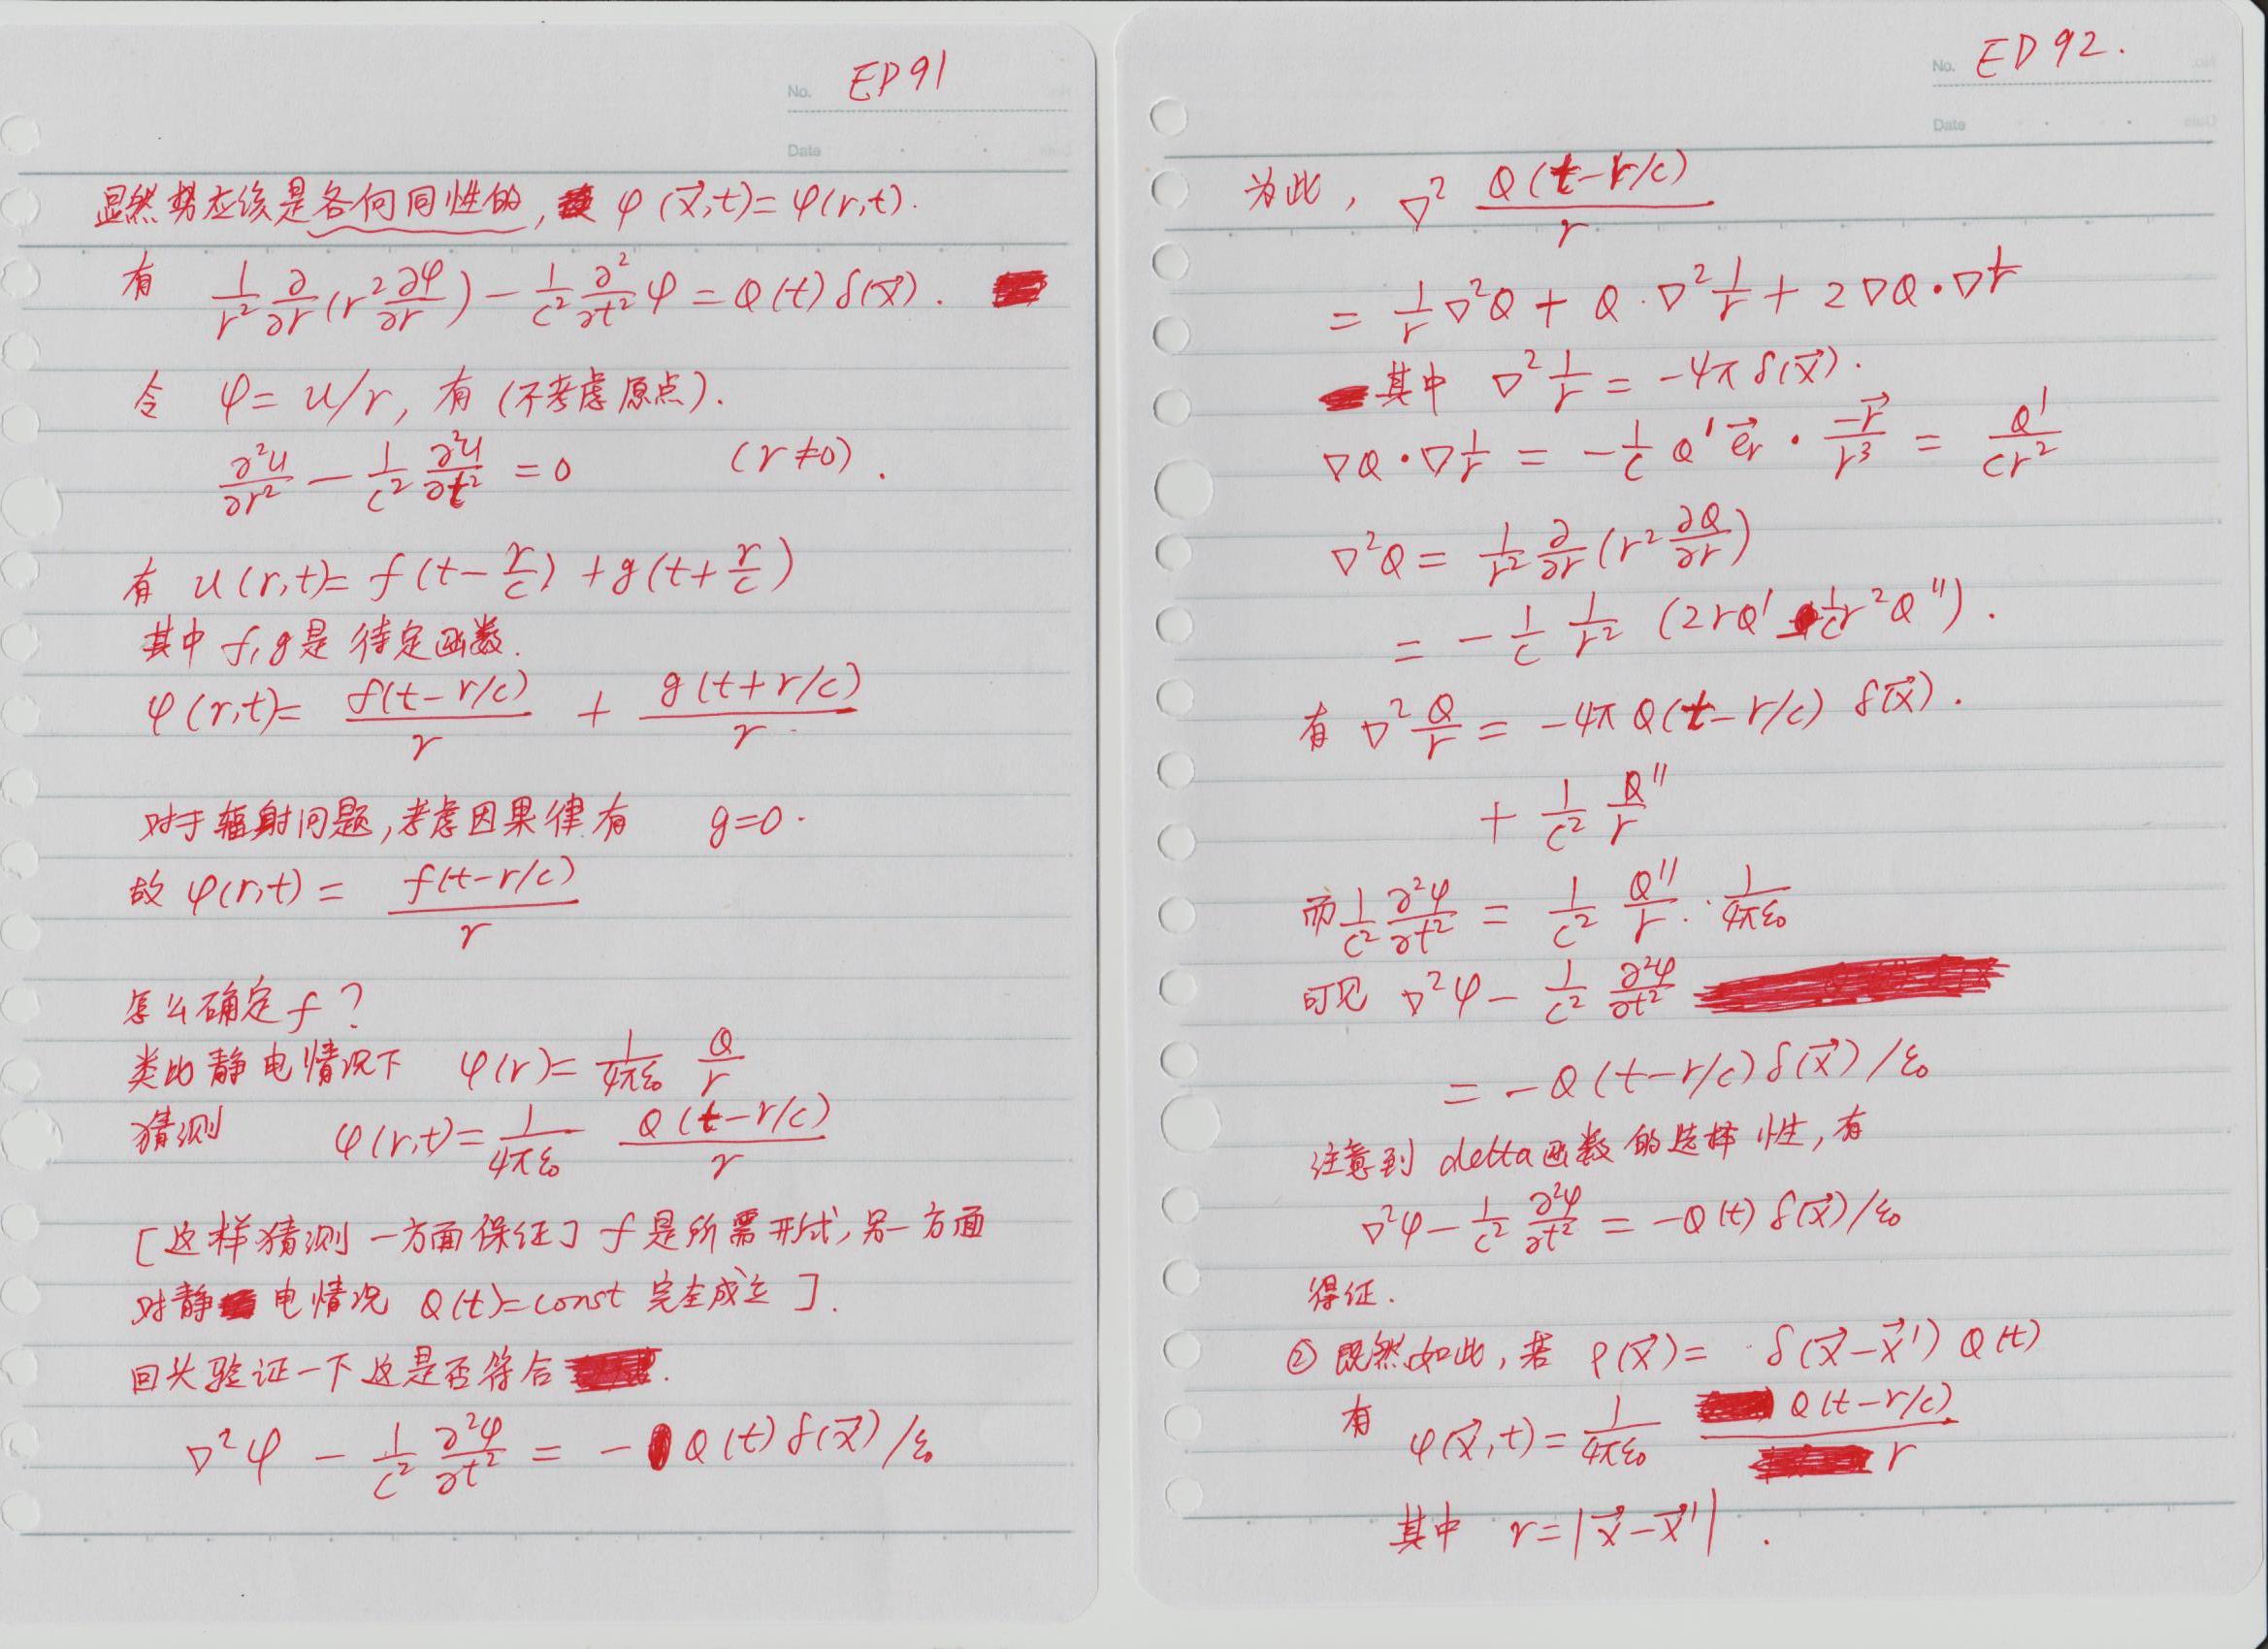 No. ED91
Date
显然势应该是各向同性的, φ(x⃗,t)=φ(r,t).
有 1/r² ∂/∂r (r² ∂φ/∂r) − 1/c² ∂²/∂t² φ = Q(t) δ(x⃗).
令 φ = u/r, 有 (不考虑原点).
∂²u/∂r² − 1/c² ∂²u/∂t² = 0 (r≠0).
有 u(r,t)= f(t−r/c) + g(t+r/c)
其中 f,g是 待定函数.
φ(r,t)= f(t−r/c)/r + g(t+r/c)/r.
对于辐射问题,考虑因果律有 g=0.
故 φ(r,t) = f(t−r/c)/r
怎么确定f?
类比静电情况下 φ(r)= 1/4πε₀ Q/r
猜测 φ(r,t)= 1/4πε₀ Q(t−r/c)/r
[这样猜测一方面保证了 f 是所需形式,另一方面
对静电情况 Q(t)=const 完全成立].
回头验证一下这是否符合.
∇²φ − 1/c² ∂²φ/∂t² = − Q(t) δ(x⃗)/ε₀
No. ED92.
Date
为此, ∇² Q(t−r/c)/r
= 1/r ∇²Q + Q·∇² 1/r + 2∇Q·∇ 1/r
其中 ∇² 1/r = −4π δ(x⃗).
∇Q·∇ 1/r = − 1/c Q' e⃗r · −r⃗/r³ = Q'/cr²
∇²Q = 1/r² ∂/∂r (r² ∂Q/∂r)
= − 1/c 1/r² (2rQ' − 1/c r²Q'').
有 ∇² Q/r = −4π Q(t−r/c) δ(x⃗).
+ 1/c² Q''/r
而 1/c² ∂²φ/∂t² = 1/c² Q''/r · 1/4πε₀
可见 ∇²φ − 1/c² ∂²φ/∂t²
= − Q(t−r/c) δ(x⃗)/ε₀
注意到 delta函数的选择性,有
∇²φ − 1/c² ∂²φ/∂t² = −Q(t) δ(x⃗)/ε₀
得证.
② 既然如此,若 ρ(x⃗)= δ(x⃗−x⃗') Q(t)
有 φ(x⃗,t) = 1/4πε₀ Q(t−r/c)/r
其中 r=|x⃗−x⃗'|.